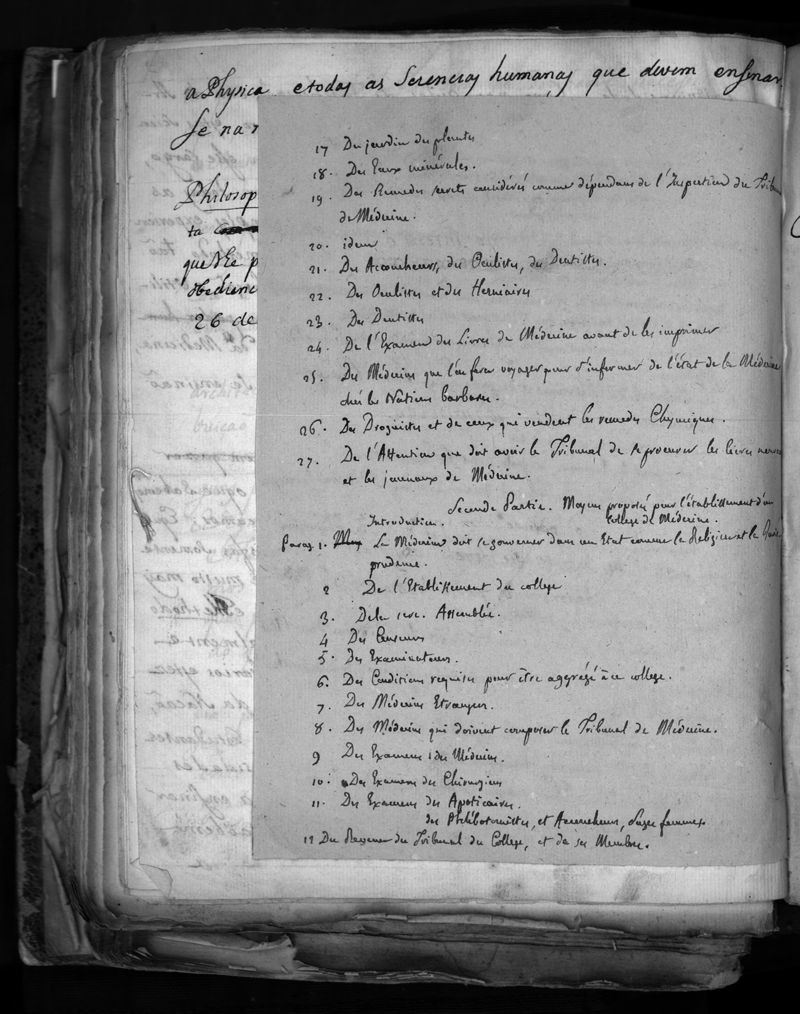 a Physica e todas as Sciencias humanas que devem ensinar
se na
Philosop
ta
que the p
obedienc
26 de
17 Du jardin des plantes
18. Des Eaux minérales.
19. Des Remedes secrets considérés comme dépendans de l'Inspection du Tribu
de Médecine.
20. idem
21. Des Accoucheurs, des Oculistes, des Dentistes.
22. Des Oculistes et des Herniaires
23. Des Dentistes
24. De l'Examen des Livres de Médecine avant de les imprimer
25. Des Médecins que l'on fera voyager pour s'informer de l'état de la Médecine
chés les Nations barbares.
26. Des Droguistes et de ceux qui vendent les remedes Chymiques.
27. De l'Attention que doit avoir le Tribunal de se procurer les livres
et les journaux de Médecine.
Seconde Partie. Moyens proposés pour l'établissement d'un
College de Médecine.
Introduction.
Parag 1. La Médecine doit se gouverner dans un Etat comme la Religion et la Juris
prudence.
2 De l'Etablissement du college
3. De la 1ere. Assemblée.
4 Des Censeurs
5. Des Examinateurs.
6. Des Conditions requises pour être aggrégé à ce college.
7. Des Médecins Etrangers.
8. Des Médecins qui doivent composer le Tribunal de Médecine.
9 Des Examens des Médecins.
10. Des Examens des Chirurgiens
11. Des Examens des Apoticaires.
des Phlébotomistes, et Accoucheurs, Sages femmes
12 Du Revenu du Tribunal du College, et de ses Membres.